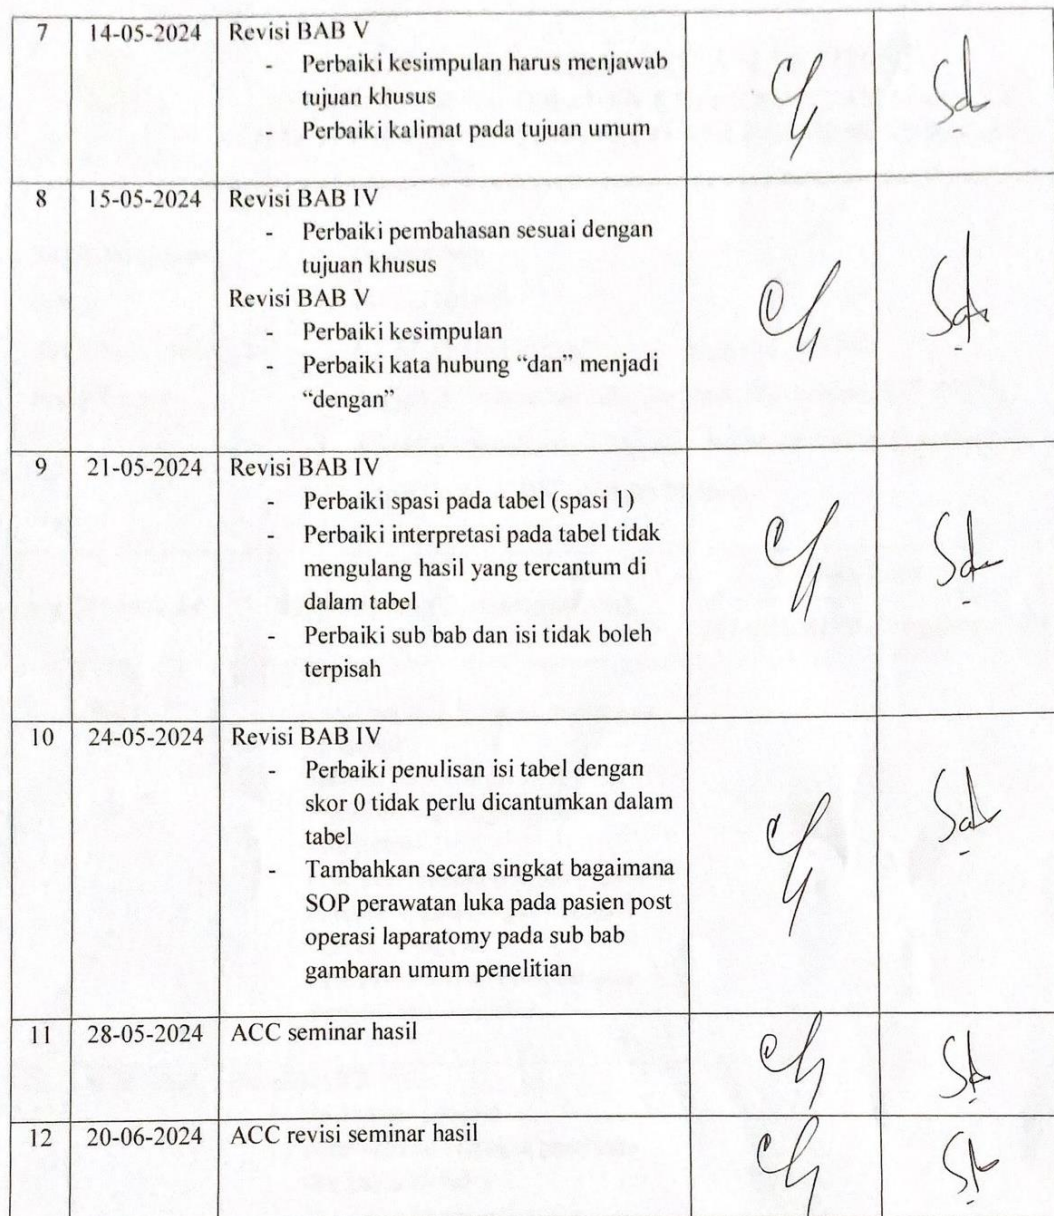 7 14-05-2024 Revisi BAB V
- Perbaiki kesimpulan harus menjawab
tujuan khusus
- Perbaiki kalimat pada tujuan umum
8 15-05-2024 Revisi BAB IV
- Perbaiki pembahasan sesuai dengan
tujuan khusus
Revisi BAB V
- Perbaiki kesimpulan
- Perbaiki kata hubung “dan” menjadi
“dengan”
9 21-05-2024 Revisi BAB IV
- Perbaiki spasi pada tabel (spasi 1)
- Perbaiki interpretasi pada tabel tidak
mengulang hasil yang tercantum di
dalam tabel
- Perbaiki sub bab dan isi tidak boleh
terpisah
10 24-05-2024 Revisi BAB IV
- Perbaiki penulisan isi tabel dengan
skor 0 tidak perlu dicantumkan dalam
tabel
- Tambahkan secara singkat bagaimana
SOP perawatan luka pada pasien post
operasi laparatomy pada sub bab
gambaran umum penelitian
11 28-05-2024 ACC seminar hasil
12 20-06-2024 ACC revisi seminar hasil